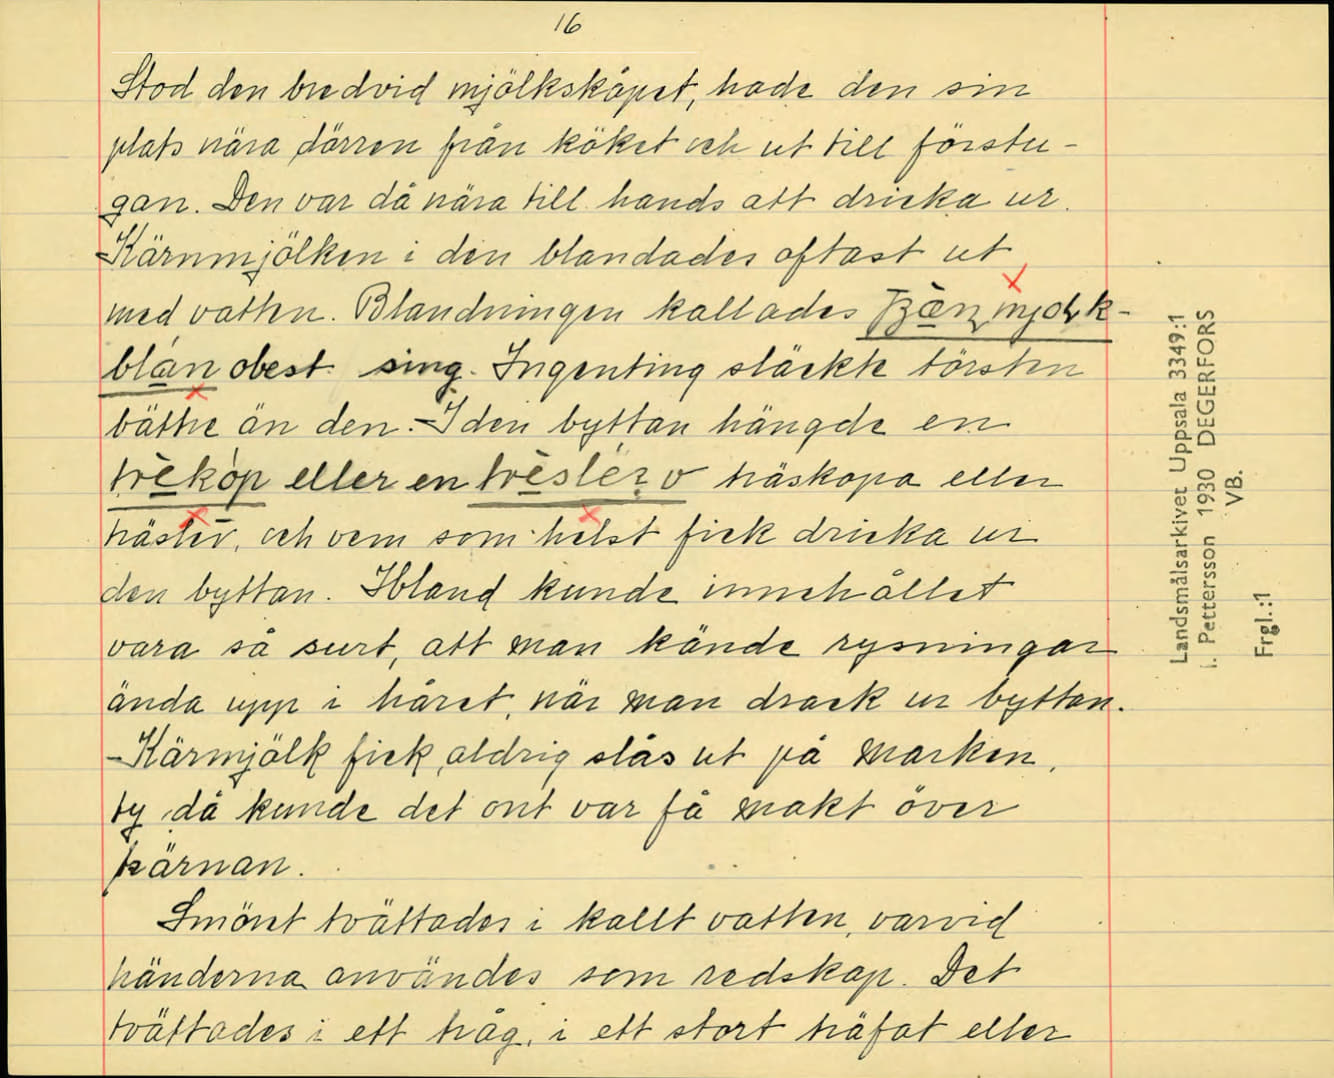 16
Stod den bredvid mjölkskåpet, hade den sin
plats nära dörren från köket och ut till förstu-
gan. Den var då nära till hands att dricka ur.
Kärnmjölken i den blandades oftast ut
med vatten. Blandningen kallades
blån obest. sing. Ingenting släckte törsten
bättre än den. - I den byttan hängde en
trèkóp eller en träskopa eller
träslev, och vem som helst fick dricka ur
den byttan. Ibland kunde innehållet
vara så surt, att man kände rysningar
ända upp i håret, när man drack ur byttan.
- Kärmjölk fick aldrig slås ut på marken,
ty då kunde det ont var få makt över
kärnan.
Smöret tvättades i kallt vatten, varvid
händerna användes som redskap. Det
tvättades i ett tråg, i ett stort träfat eller
Landsmålsarkivet Uppsala 3349:1
I. Pettersson 1930 DEGERFORS
VB.
Frgl.:1